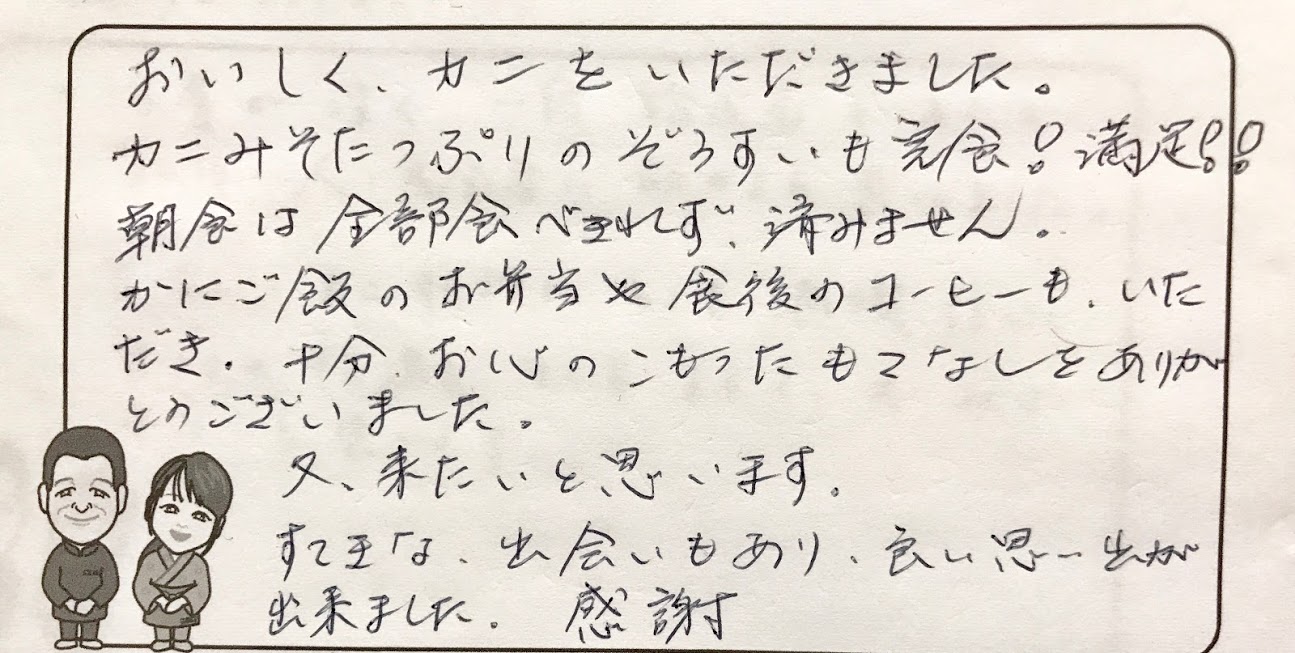 おいしく、カニをいただきました。
カニみそたっぷりのぞろすいも完食!満足!!
朝食は全部食べきれず、済みません。
かにご飯のお弁当や食後のコーヒーも、いた
だき、十分、お心のこもったもてなしをありが
とうございました。
又、来たいと思います。
すてきな、出会いもあり、良い思い出が
出来ました。 感謝